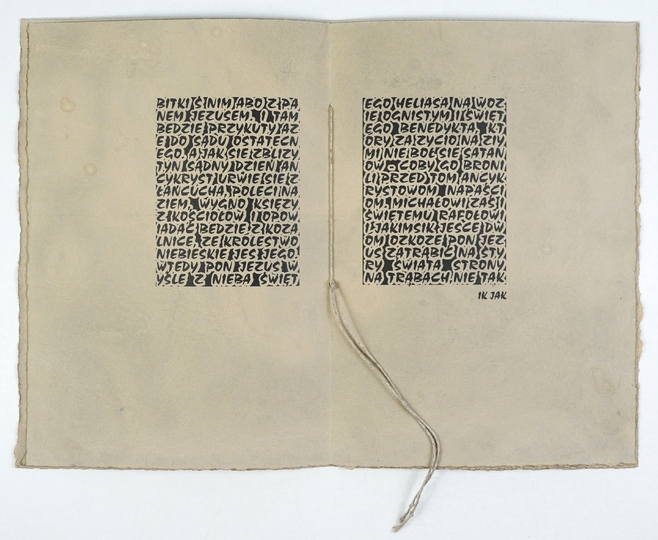 BITKI Z NIM ABO Z PA
NEM JEZUSEM. I TAM
BEDZIE PRZYKUTY AZ
E DO SADU OSTATECN
EGO. A JAK SIE ZBLIZY
TYN SADNY DZIEN AN
CYKRYST URWIE SIE Z
ŁANCUCHA, POLECI NA
ZIEM, WYGNO KSIEZY
Z KOSCIOŁOW I OPOW
IADAĆ BEDZIE Z KOZA
LNICE, ZE KROLESTWO
NIEBIESKIE JES JEGO.
WTEDY PON JEZUS W
YŚLE Z NIEBA ŚWIET
EGO HELIASA NA WOZ
IE OGNISTYM I ŚWIET
EGO BENEDYKTA, KT
ORY ZA ZYCIO NA ZIY
MI NIE BOŁ SIE SATAN
OW
LI PRZED TOM ANCYK
RYSTOWOM NAPAŚCI
OM. MICHAŁOWI ZAŚ I
ŚWIETEMU RAFOŁOWI
I JAKIMSIK JESCE DW
OM OZKOZE PON JEZ
US ZATRABIĆ NA ŚTY
RY ŚWIATA STRONY
NA TRABACH, NIE TAK
IK JAK